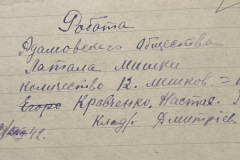 Работа
Адамовского Общества
Латала мишки
количество 12. мешков. =
Егоро Кравченко. Настас.
Клад/ Дмитріев.
42.